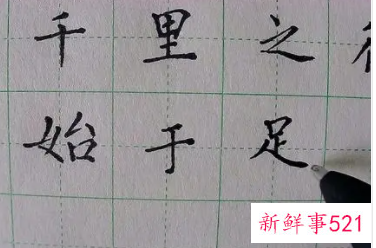 千里之
始于足
新鲜事521